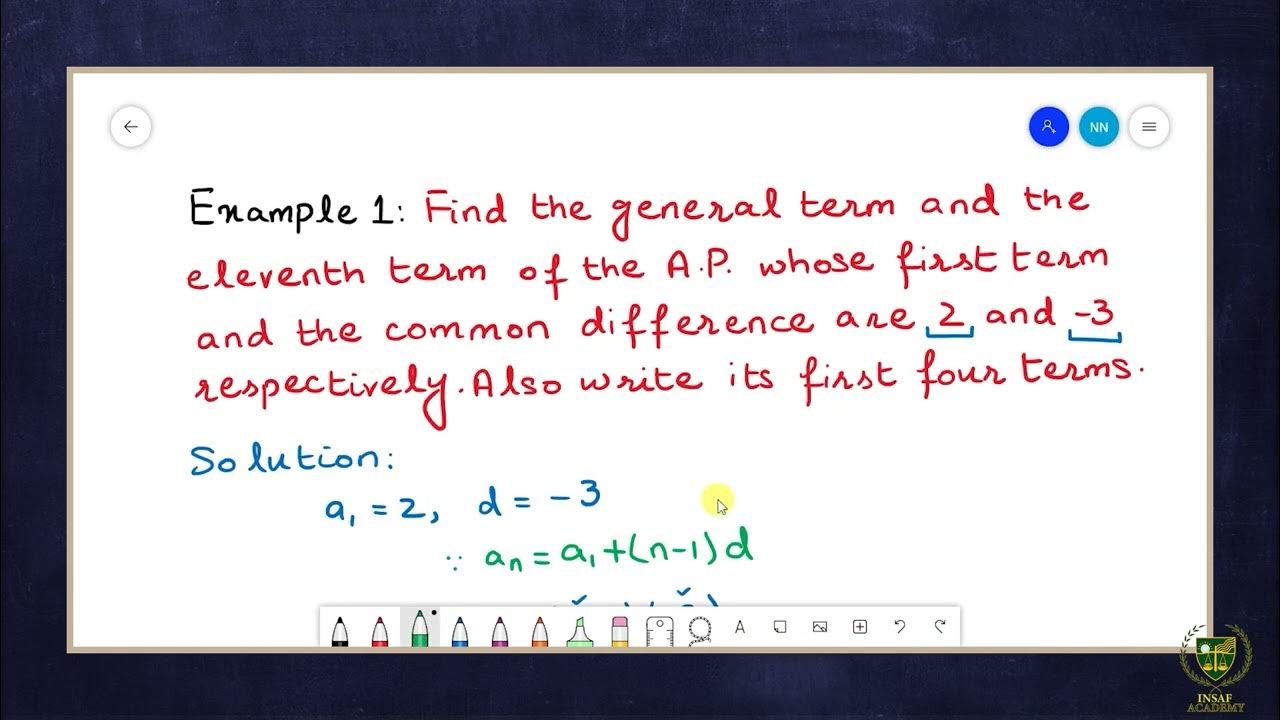 NN
Example 1: Find the general term and the
eleventh term of the A.P. whose first term
and the common difference are 2 and -3
respectively. Also write its first four terms.
Solution:
a₁ = 2, d = -3
∵ aₙ = a₁ + (n-1) d
A
INSAF
ACADEMY